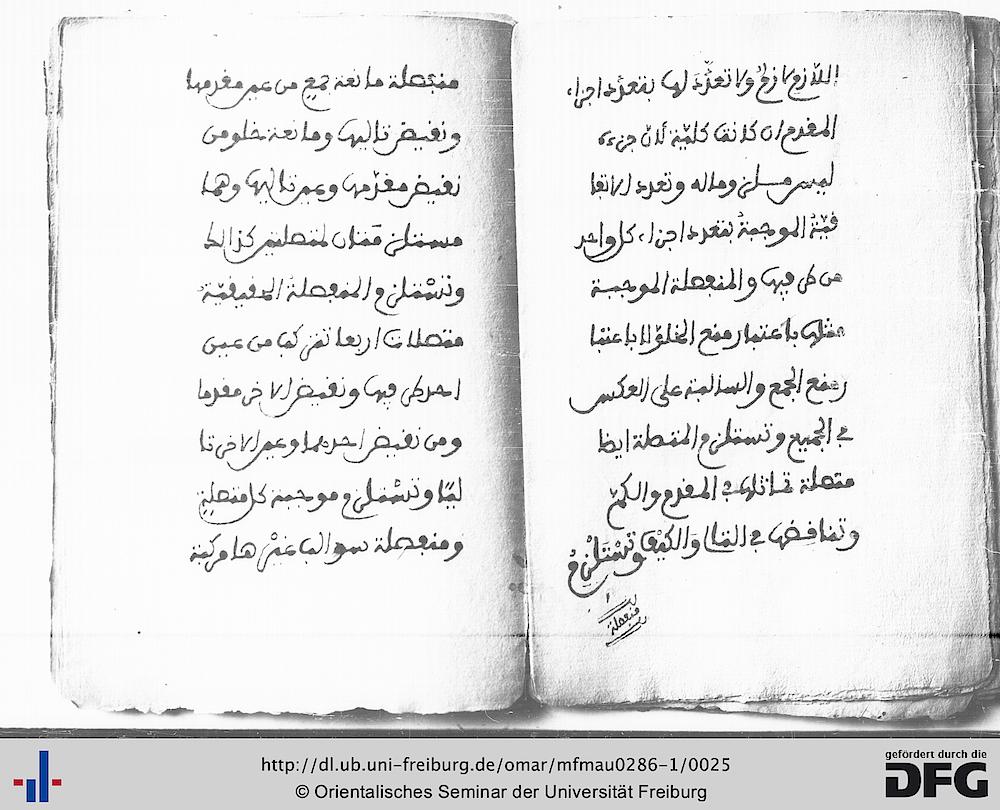 اللازم لازم ولا تعدّد لها بتعدّد اجزاء
المقدم ان كانت كليّة لانّ جزءه
ليس مستلزما له وتعدد الاتفا
قيّة الموجبة بتعدد اجزاء كل واحد
من طرفيها والمنفصلة الموجبة
مثلها باعتبار منع الخلو لا باعتبا
ر منع الجمع والسالبة على العكس
في الجميع وتستلزم المتصلة ايضا
متصلة تماثلها في المقدم والكمّ
وتناقضها في التالي والكيف وتستلزم
منفصلة
منفصلة مانعة جمع من عين مقدمها
ونقيض تاليها ومانعة خلو من
نقيض مقدّمها وعين تاليها وهما
مستلزمتان لمتصلتين كذالك
وتستلزم المنفصلة الحقيقيّة
متصلات اربعا تتركب من عين
احد طرفيها ونقيض الاخر مقدما
ومن نقيض احدهما وعين الاخر تا
ليًا وتستلزم موجبة كل متصلةٍ
ومنفصلة سوالب غيرها مركبة
http://dl.ub.uni-freiburg.de/omar/mfmau0286-1/0025
© Orientalisches Seminar der Universität Freiburg
gefördert durch die
DFG